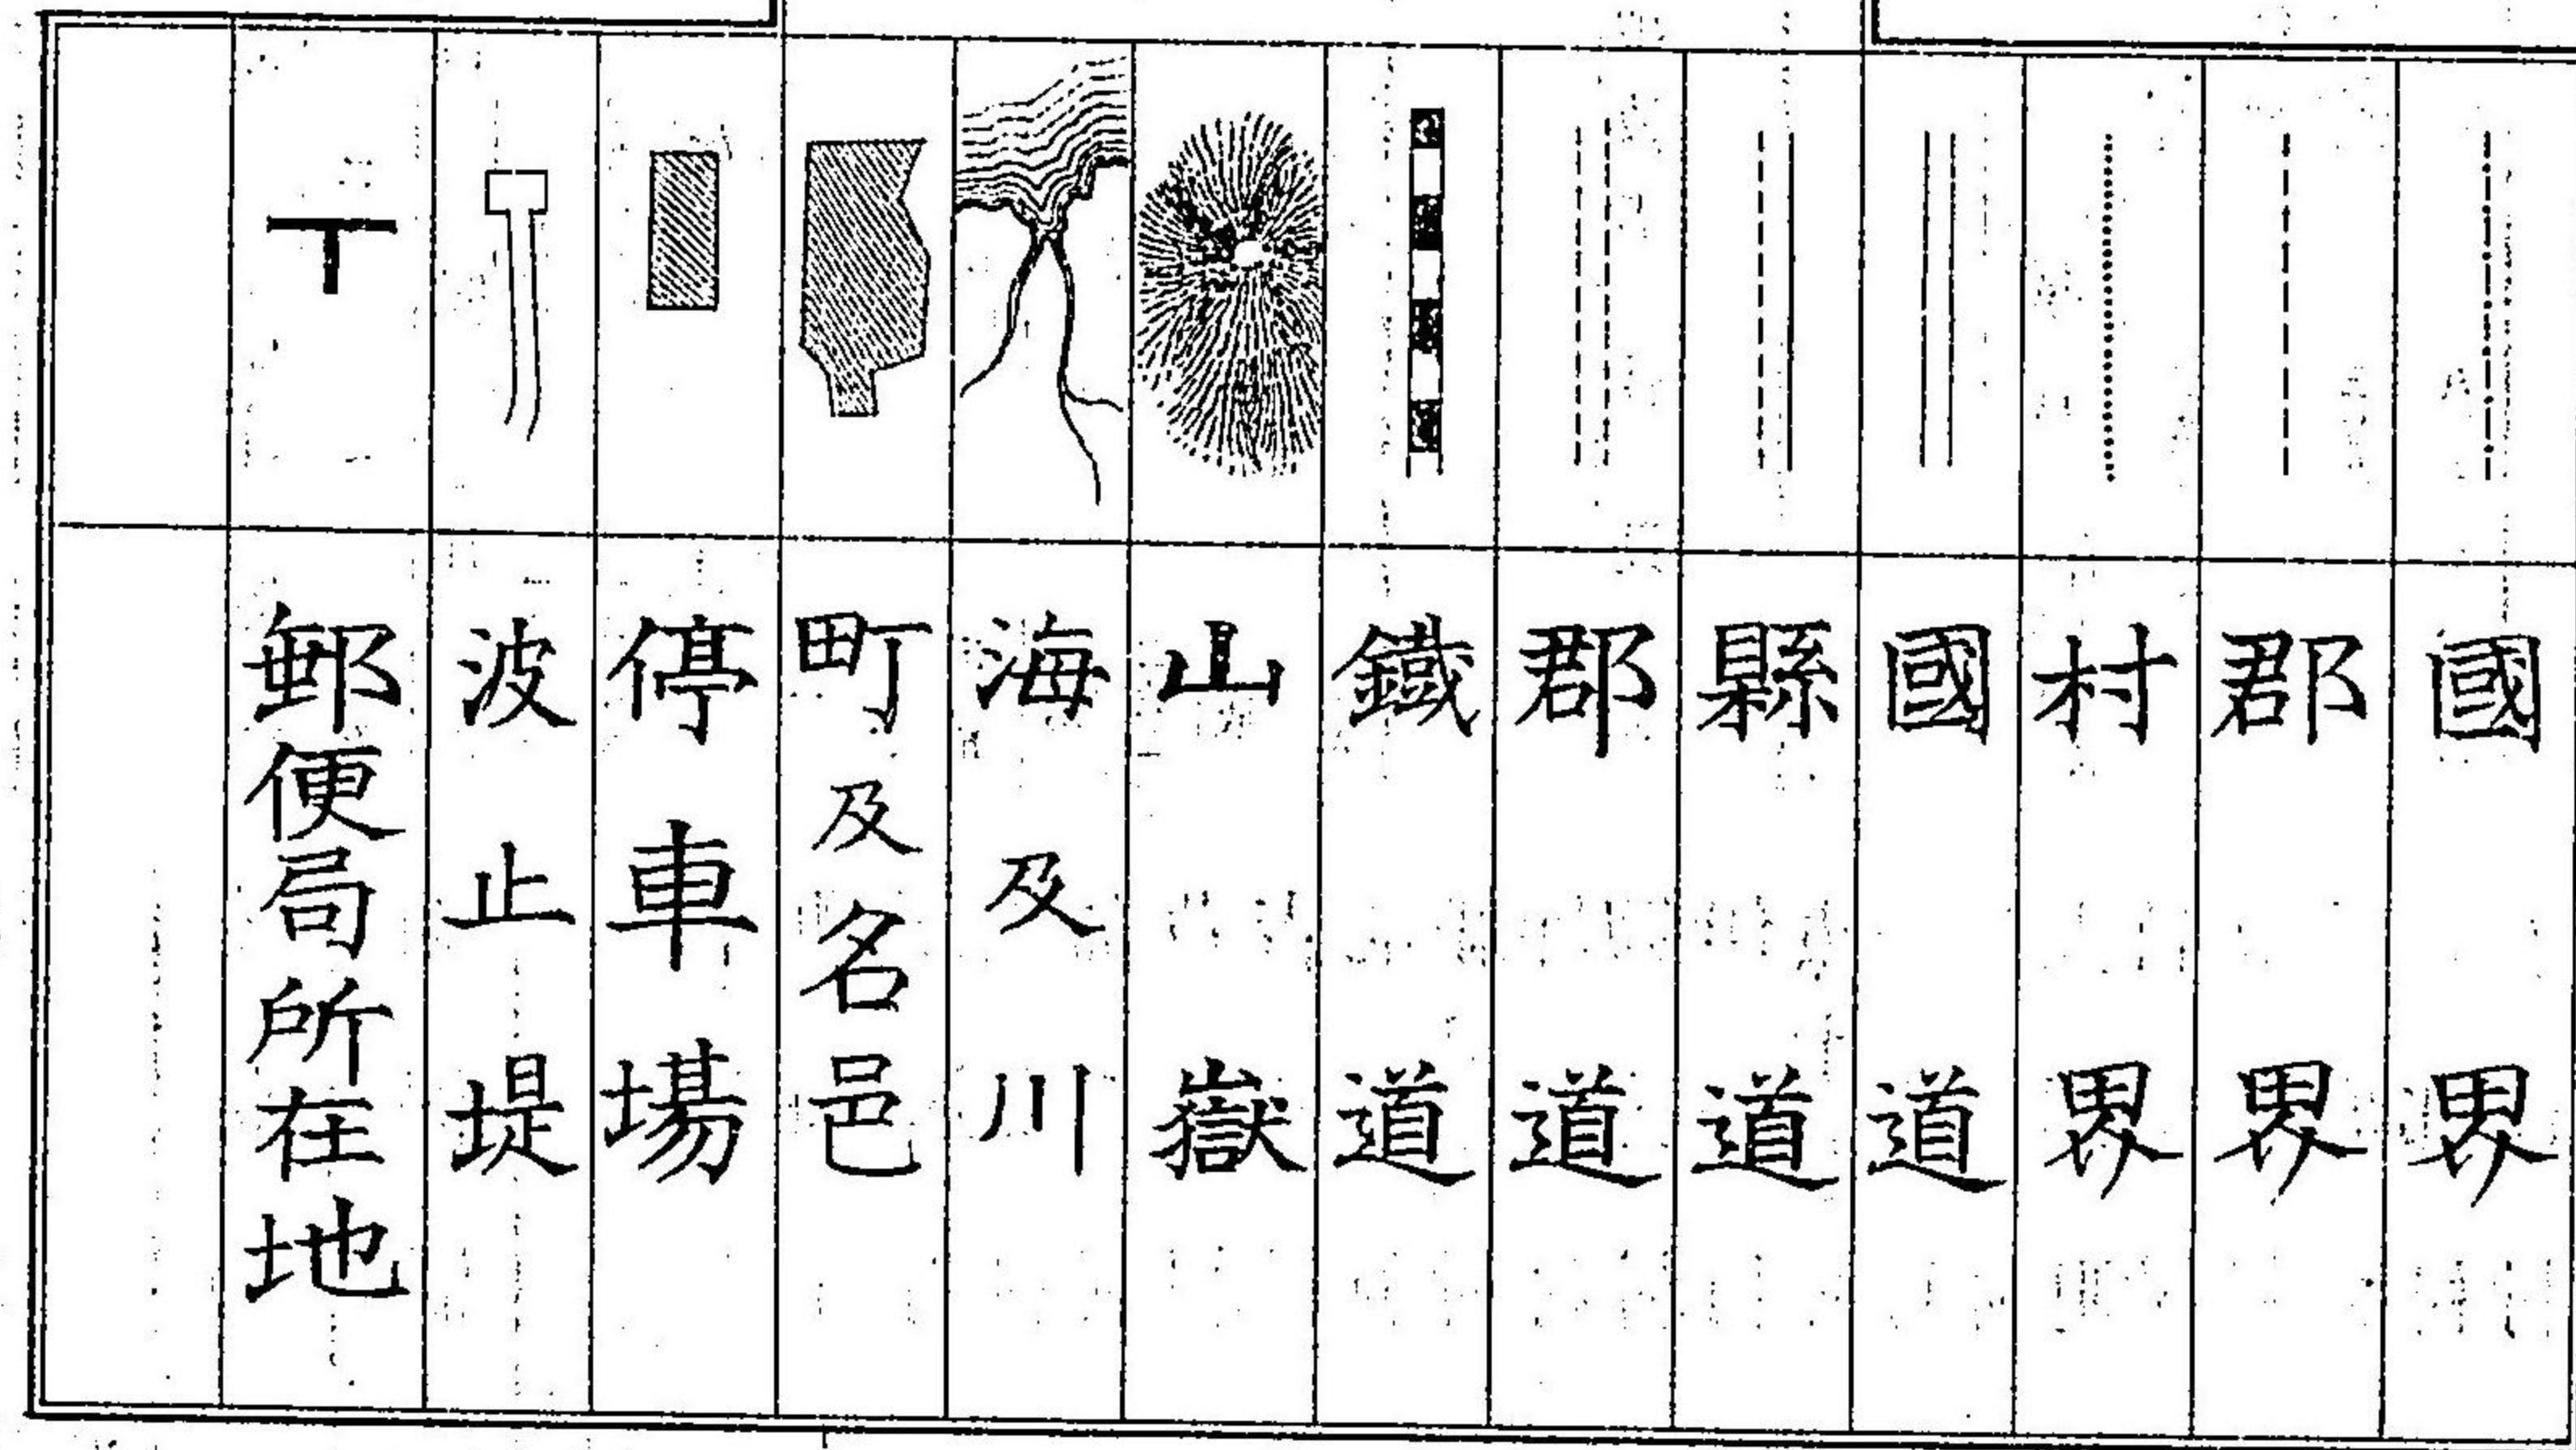 國界
郡界
村界
國道
縣道
郡道
鐵道
山嶽
海及川
町及名邑
停車場
波止堤
郵便局所在地